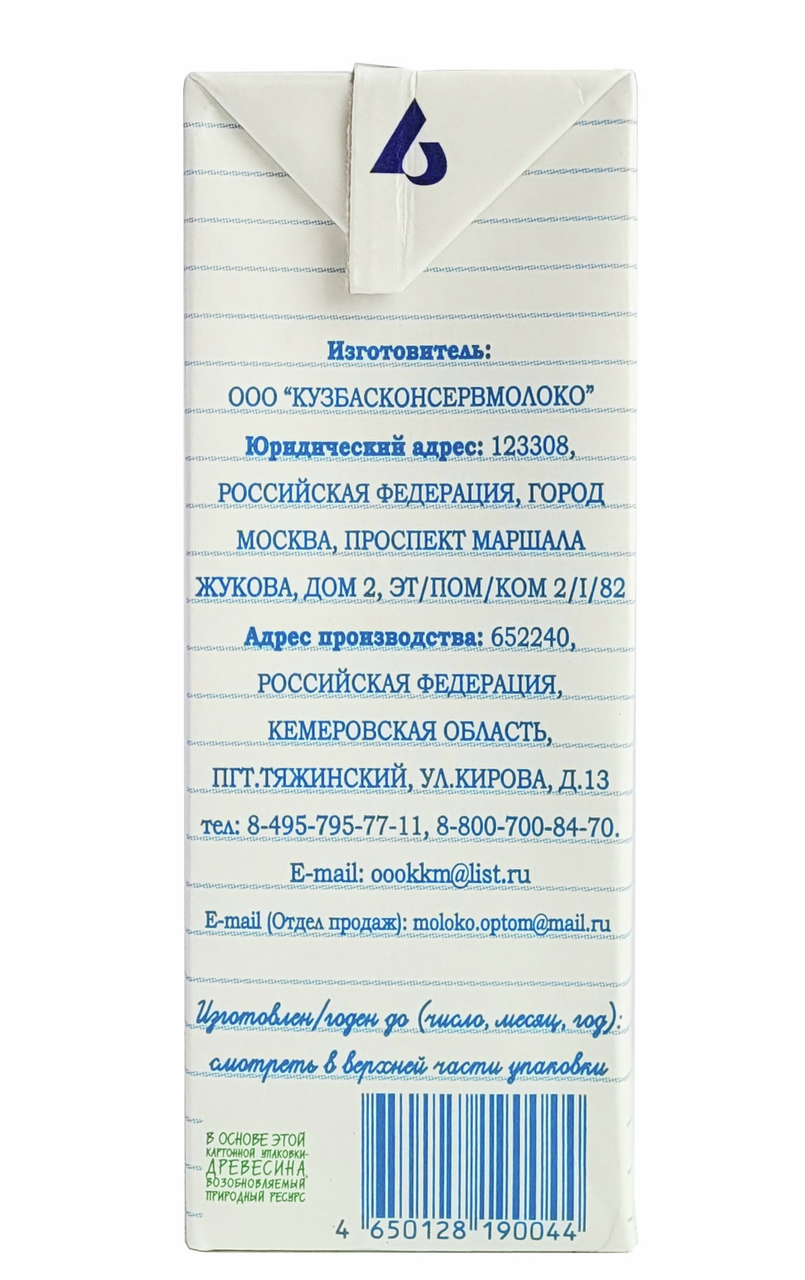 Изготовитель:
ООО “КУЗБАСКОНСЕРВМОЛОКО”
Юридический адрес: 123308,
РОССИЙСКАЯ ФЕДЕРАЦИЯ, ГОРОД
МОСКВА, ПРОСПЕКТ МАРШАЛА
ЖУКОВА, ДОМ 2, ЭТ/ПОМ/КОМ 2/I/82
Адрес производства: 652240,
РОССИЙСКАЯ ФЕДЕРАЦИЯ,
КЕМЕРОВСКАЯ ОБЛАСТЬ,
ПГТ.ТЯЖИНСКИЙ, УЛ.КИРОВА, Д.13
тел: 8-495-795-77-11, 8-800-700-84-70.
E-mail: oookkm@list.ru
E-mail (Отдел продаж): moloko.optom@mail.ru
Изготовлен/годен до (число, месяц, год):
смотреть в верхней части упаковки
В ОСНОВЕ ЭТОЙ
КАРТОННОЙ УПАКОВКИ-
ДРЕВЕСИНА,
ВОЗОБНОВЛЯЕМЫЙ
ПРИРОДНЫЙ РЕСУРС
4 650128 190044